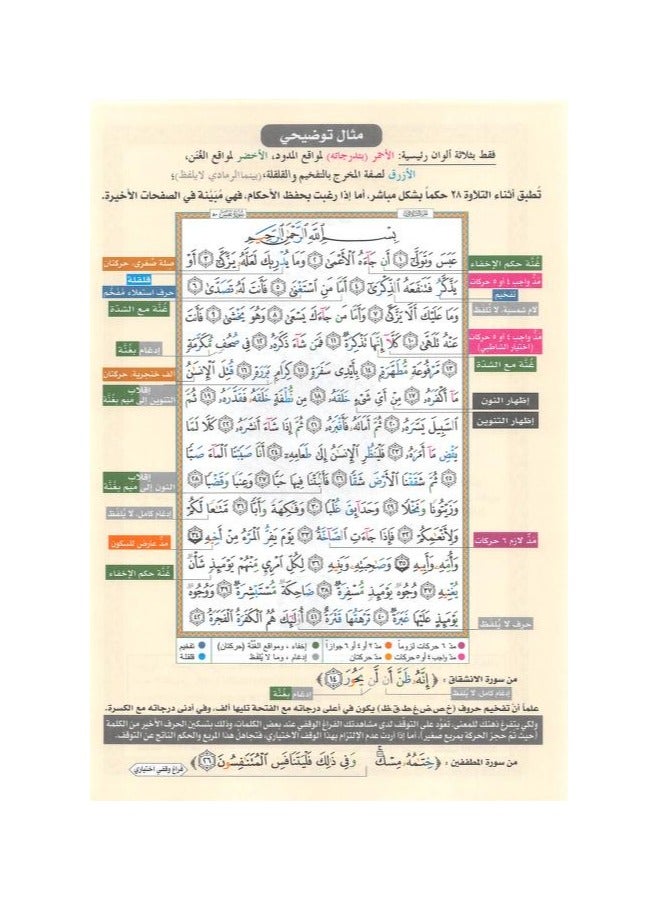 مثال توضيحي
فقط بثلاثة ألوان رئيسية: الأحمر (بتدرجاته) لمواقع المدود، الأخضر لمواقع الغُنَن،
الأزرق لصفة المخرج بالتفخيم والقلقلة، (بينما الرمادي لا يلفظ)؛
تُطبق أثناء التلاوة ٢٨ حكماً بشكل مباشر، أما إذا رغبت بحفظ الأحكام، فهي مُبَيّنة في الصفحات الأخيرة.
بِسْمِ اللَّهِ الرَّحْمَٰنِ الرَّحِيمِ
عَبَسَ وَتَوَلَّىٰ ١ أَن جَاءَهُ الْأَعْمَىٰ ٢ وَمَا يُدْرِيكَ لَعَلَّهُ يَزَّكَّىٰ ٣ أَوْ
يَذَّكَّرُ فَتَنفَعَهُ الذِّكْرَىٰ ٤ أَمَّا مَنِ اسْتَغْنَىٰ ٥ فَأَنتَ لَهُ تَصَدَّىٰ ٦
وَمَا عَلَيْكَ أَلَّا يَزَّكَّىٰ ٧ وَأَمَّا مَن جَاءَكَ يَسْعَىٰ ٨ وَهُوَ يَخْشَىٰ ٩ فَأَنتَ
عَنْهُ تَلَهَّىٰ ١٠ كَلَّا إِنَّهَا تَذْكِرَةٌ ١١ فَمَن شَاءَ ذَكَرَهُ ١٢ فِي صُحُفٍ مُّكَرَّمَةٍ
١٣ مَّرْفُوعَةٍ مُّطَهَّرَةٍ ١٤ بِأَيْدِي سَفَرَةٍ ١٥ كِرَامٍ بَرَرَةٍ ١٦ قُتِلَ الْإِنسَٰنُ
مَا أَكْفَرَهُ ١٧ مِنْ أَيِّ شَيْءٍ خَلَقَهُ ١٨ مِن نُّطْفَةٍ خَلَقَهُ فَقَدَّرَهُ ١٩ ثُمَّ
السَّبِيلَ يَسَّرَهُ ٢٠ ثُمَّ أَمَاتَهُ فَأَقْبَرَهُ ٢١ ثُمَّ إِذَا شَاءَ أَنشَرَهُ ٢٢ كَلَّا لَمَّا
يَقْضِ مَا أَمَرَهُ ٢٣ فَلْيَنظُرِ الْإِنسَٰنُ إِلَىٰ طَعَامِهِ ٢٤ أَنَّا صَبَبْنَا الْمَاءَ صَبًّا
٢٥ ثُمَّ شَقَقْنَا الْأَرْضَ شَقًّا ٢٦ فَأَنبَتْنَا فِيهَا حَبًّا ٢٧ وَعِنَبًا وَقَضْبًا ٢٨
وَزَيْتُونًا وَنَخْلًا ٢٩ وَحَدَائِقَ غُلْبًا ٣٠ وَفَٰكِهَةً وَأَبًّا ٣١ مَّتَٰعًا لَّكُمْ
وَلِأَنْعَٰمِكُمْ ٣٢ فَإِذَا جَاءَتِ الصَّاخَّةُ ٣٣ يَوْمَ يَفِرُّ الْمَرْءُ مِنْ أَخِيهِ ٣٤
وَأُمِّهِ وَأَبِيهِ ٣٥ وَصَٰحِبَتِهِ وَبَنِيهِ ٣٦ لِكُلِّ امْرِئٍ مِّنْهُمْ يَوْمَئِذٍ شَأْنٌ
يُغْنِيهِ ٣٧ وُجُوهٌ يَوْمَئِذٍ مُّسْفِرَةٌ ٣٨ ضَاحِكَةٌ مُّسْتَبْشِرَةٌ ٣٩ وَوُجُوهٌ
يَوْمَئِذٍ عَلَيْهَا غَبَرَةٌ ٤٠ تَرْهَقُهَا قَتَرَةٌ ٤١ أُولَٰئِكَ هُمُ الْكَفَرَةُ الْفَجَرَةُ ٤٢
غُنّة حكم الإخفاء
مدّ واجب ٤ أو ٥ حركات
تفخيم
لام شمسية، لا تلفظ
مدّ واجب ٤ أو ٥ حركات
(اختيار الشاطبي)
غُنّة مع الشدّة
إظهار النون
إظهار التنوين
مدّ لازم ٦ حركات
حرف لا يُلفظ
صلة صُغرى، حركتان
قلقلة
حرف استعلاء مُفخّم
غُنّة مع الشدّة
إدغام بغُنّة
ألف خنجرية، حركتان
إقلاب
التنوين إلى ميم بغُنّة
إقلاب
النون إلى ميم بغُنّة
إدغام كامل، لا يُلفظ
مدّ عارض للسكون
غُنّة حكم الإخفاء
مدّ ٦ حركات لزوماً مدّ ٢ أو ٤ أو ٦ جوازاً إخفاء، ومواقع الغُنّة (حركتان) تفخيم
مدّ واجب ٤ أو ٥ حركات مدّ حركتان إدغام، وما لا يُلفظ قلقلة
من سورة الانشقاق: ﴿ إِنَّهُ ظَنَّ أَن لَّن يَحُورَ ١٤ ﴾
إدغام كامل، لا يُلفظ إدغام بغُنّة
علماً أنّ تفخيم حروف (خ،ص،ض،غ،ط،ق،ظ) يكون في أعلى درجاته مع الفتحة تليها ألف، وفي أدنى درجاته مع الكسرة.
ولكي يتفرغ ذهنك للمعنى، تعوّد على التوقف لدى مشاهدتك الفراغ الوقفي عند بعض الكلمات، وذلك بتسكين الحرف الأخير من الكلمة
(حيث تمّ حجز الحركة بمربع صغير)، أما إذا أردت عدم الالتزام بهذا الوقف الاختياري، فتجاهل هذا المربع والحكم الناتج عن التوقف.
من سورة المطففين: ﴿ خِتَٰمُهُ مِسْكٌ وَفِي ذَٰلِكَ فَلْيَتَنَافَسِ الْمُتَنَٰفِسُونَ ٢٦ ﴾ فراغ وقفي اختياري